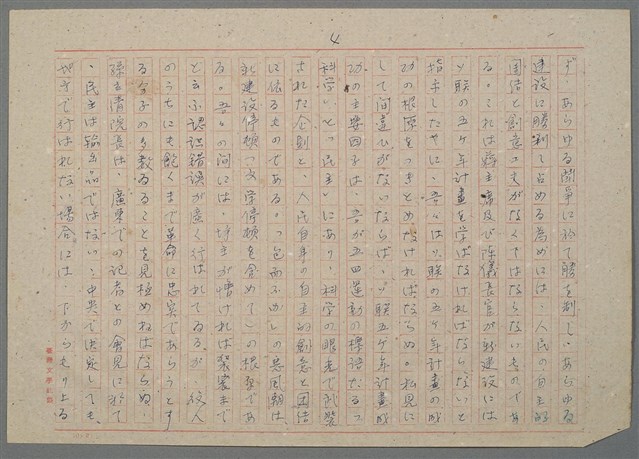 4
ず、あらゆる闘爭に於て勝を制し、あらゆる
建設に勝利を占める為めには、人民の自主的
団結と創意工夫がなくてはならないものであ
る。これは蔣主席及び陳儀長官が新建設には
ソ联の五ヶ年計畫を学ばなければならないと
指示したやうに、吾々はソ联の五ヶ年計畫の成
功の根源をつきとめなければならぬ。私見に
して間違ひがないならば、ソ联五ヶ年計畫成
功の主要因子は、吾が五四運動の標語たる「
科学」と「民主」にあり、科学の眼光で武裝
された企劃と、人民自身の自主的創意と団結
に依るものである。「包而不办」の悪風潮は、
新建設停頓（文学停頓を含めて）の根源であ
る。吾々の間には、坊主が憎ければ袈裟まで
と云ふ認識錯誤が廣く行はれてゐるが、役人
のうちにも飽くまで革命に忠実であらうとす
る分子の多数ゐることを見極めねばならぬ。
孫立法院長は、廣東での記者との會見に於て
、民主は輸出品ではない、中央で決定しても、
地方で行はれない場合には、下からもり上る
臺灣文學社